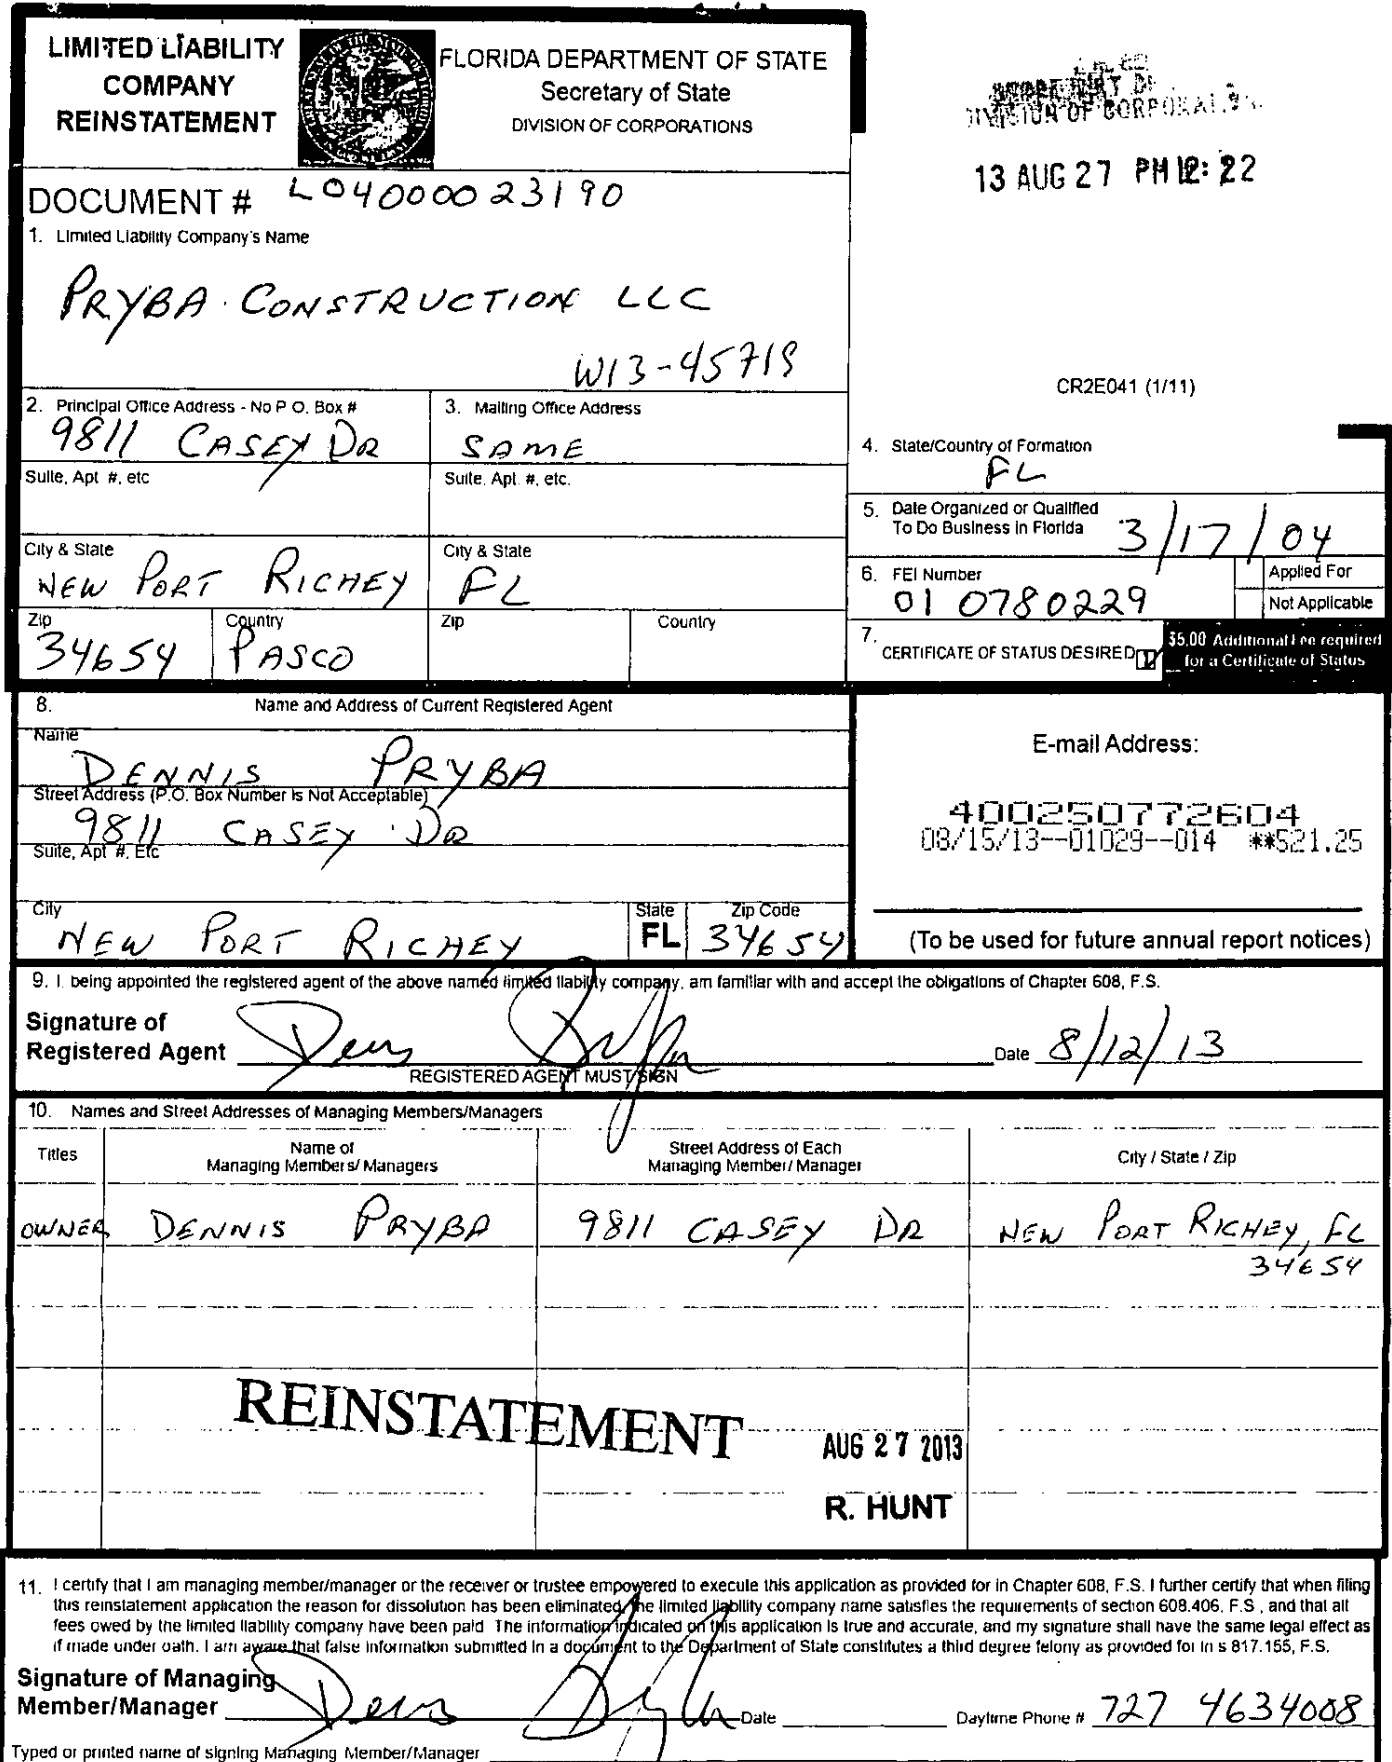 LIMITED LIABILITY
COMPANY
REINSTATEMENT
FLORIDA DEPARTMENT OF STATE
Secretary of State
DIVISION OF CORPORATIONS
DIVISION OF CORPORATIONS
13 AUG 27 PM 12: 22
DOCUMENT # L04000023190
1. Limited Liability Company's Name
PRYBA CONSTRUCTION LLC
W13-45719
CR2E041 (1/11)
2. Principal Office Address - No P O. Box #
9811 CASEY DR
3. Mailing Office Address
SAME
Suite, Apt #, etc
Suite, Apt. #, etc.
City & State
NEW PORT RICHEY
City & State
FL
Zip
34654
Country
PASCO
Zip
Country
4. State/Country of Formation
FL
5. Date Organized or Qualified
To Do Business in Florida 3/17/04
6. FEI Number
01 0780229
Applied For
Not Applicable
7. CERTIFICATE OF STATUS DESIRED
$5.00 Additional Fee required
for a Certificate of Status
8. Name and Address of Current Registered Agent
Name
DENNIS PRYBA
Street Address (P.O. Box Number Is Not Acceptable)
9811 CASEY DR
Suite, Apt #, Etc
City
NEW PORT RICHEY
State
FL
Zip Code
34654
E-mail Address:
400250772604
08/15/13--01029--014 **521.25
(To be used for future annual report notices)
9. I, being appointed the registered agent of the above named limited liability company, am familiar with and accept the obligations of Chapter 608, F.S.
Signature of
Registered Agent
Date 8/12/13
REGISTERED AGENT MUST SIGN
10. Names and Street Addresses of Managing Members/Managers
Titles
Name of
Managing Members/ Managers
Street Address of Each
Managing Member/ Manager
City / State / Zip
OWNER DENNIS PRYBA 9811 CASEY DR NEW PORT RICHEY, FL
34654
REINSTATEMENT
AUG 27 2013
R. HUNT
11. I certify that I am managing member/manager or the receiver or trustee empowered to execute this application as provided for in Chapter 608, F.S. I further certify that when filing
this reinstatement application the reason for dissolution has been eliminated, the limited liability company name satisfies the requirements of section 608.406, F.S , and that all
fees owed by the limited liability company have been paid The information indicated on this application is true and accurate, and my signature shall have the same legal effect as
if made under oath. I am aware that false information submitted in a document to the Department of State constitutes a third degree felony as provided for in s 817.155, F.S.
Signature of Managing
Member/Manager
Date
Daytime Phone # 727 4634008
Typed or printed name of signing Managing Member/Manager